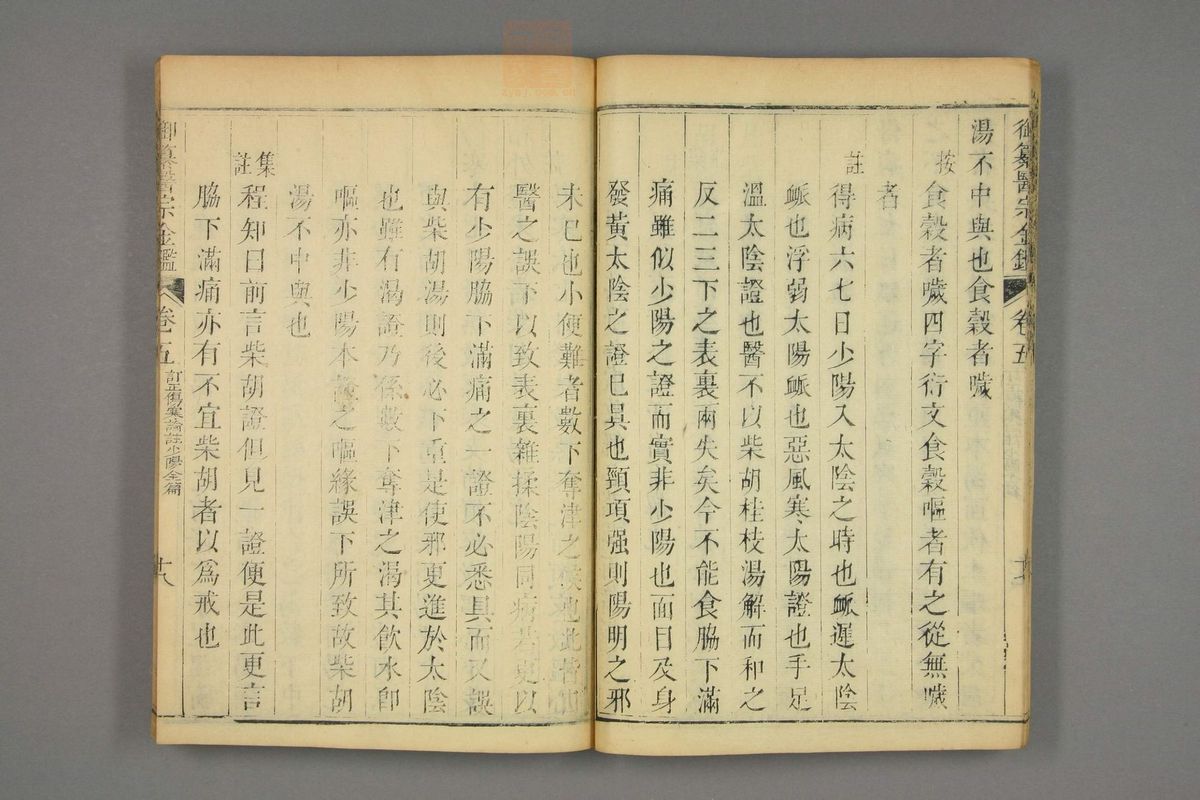 御纂醫宗金鑑 卷五
湯不中與也食穀者噦
按 食穀者噦四字衍文食穀嘔者有之從無噦
者
註 得病六七日少陽入太陰之時也脈遲太陰
脈也浮弱太陽脈也惡風寒太陽證也手足
溫太陰證也醫不以柴胡桂枝湯解而和之
反二三下之表裏兩失矣今不能食脇下滿
痛雖似少陽之證而實非少陽也面目及身
發黃太陰之證已具也頸項强則陽明之邪
未已也小便難者數下奪津之候也此皆由
醫之誤下以致表裏雜揉陰陽同病若更以
有少陽脇下滿痛之一證不必悉具而又誤
與柴胡湯則後必下重是使邪更進於太陰
也雖有渴證乃係數下奪津之渴其飲水卽
嘔亦非少陽本證之嘔緣誤下所致故柴胡
湯不中與也
集註 程知曰前言柴胡證但見一證便是此更言
脇下滿痛亦有不宜柴胡者以爲戒也
御纂醫宗金鑑 卷五 訂正傷寒論註少陽全篇 十八